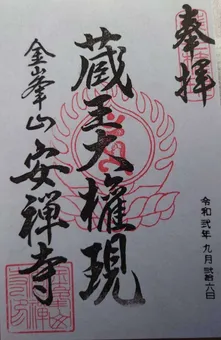 奉拝
蔵王大権現
金峯山 安禅寺
令和弐年 九月 弐拾六日